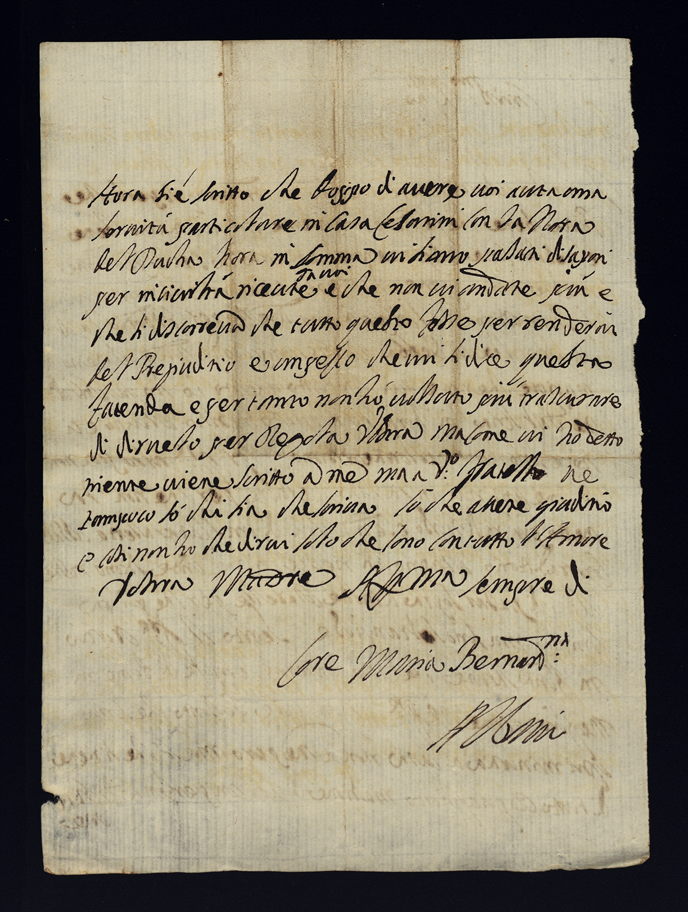 Hora si è scritto che doppo di avere voi auta una
servitù particolare in Casa Cesarini con la Nora
del Ducha hora in somma vi siano passati disapori
per inciviltà ricevute da voi e che non vi andate più e
che si discorreva che tutto questo fosse per rendervi
del Prepiuditio e confesso che mi si dice questa
facenda e per tanto non hò voluto più trascurare
di dirvelo per Regola Vostra ma come vi ho detto
niente viene scritto a me ma a Vo: fratello ne
so chi sia che scriva so che avete giuditio
e così non ho che dirvi solo che sono con tutto l'Amore
Vostra Madre Mamma sempre di
Core Maria Bernardna: